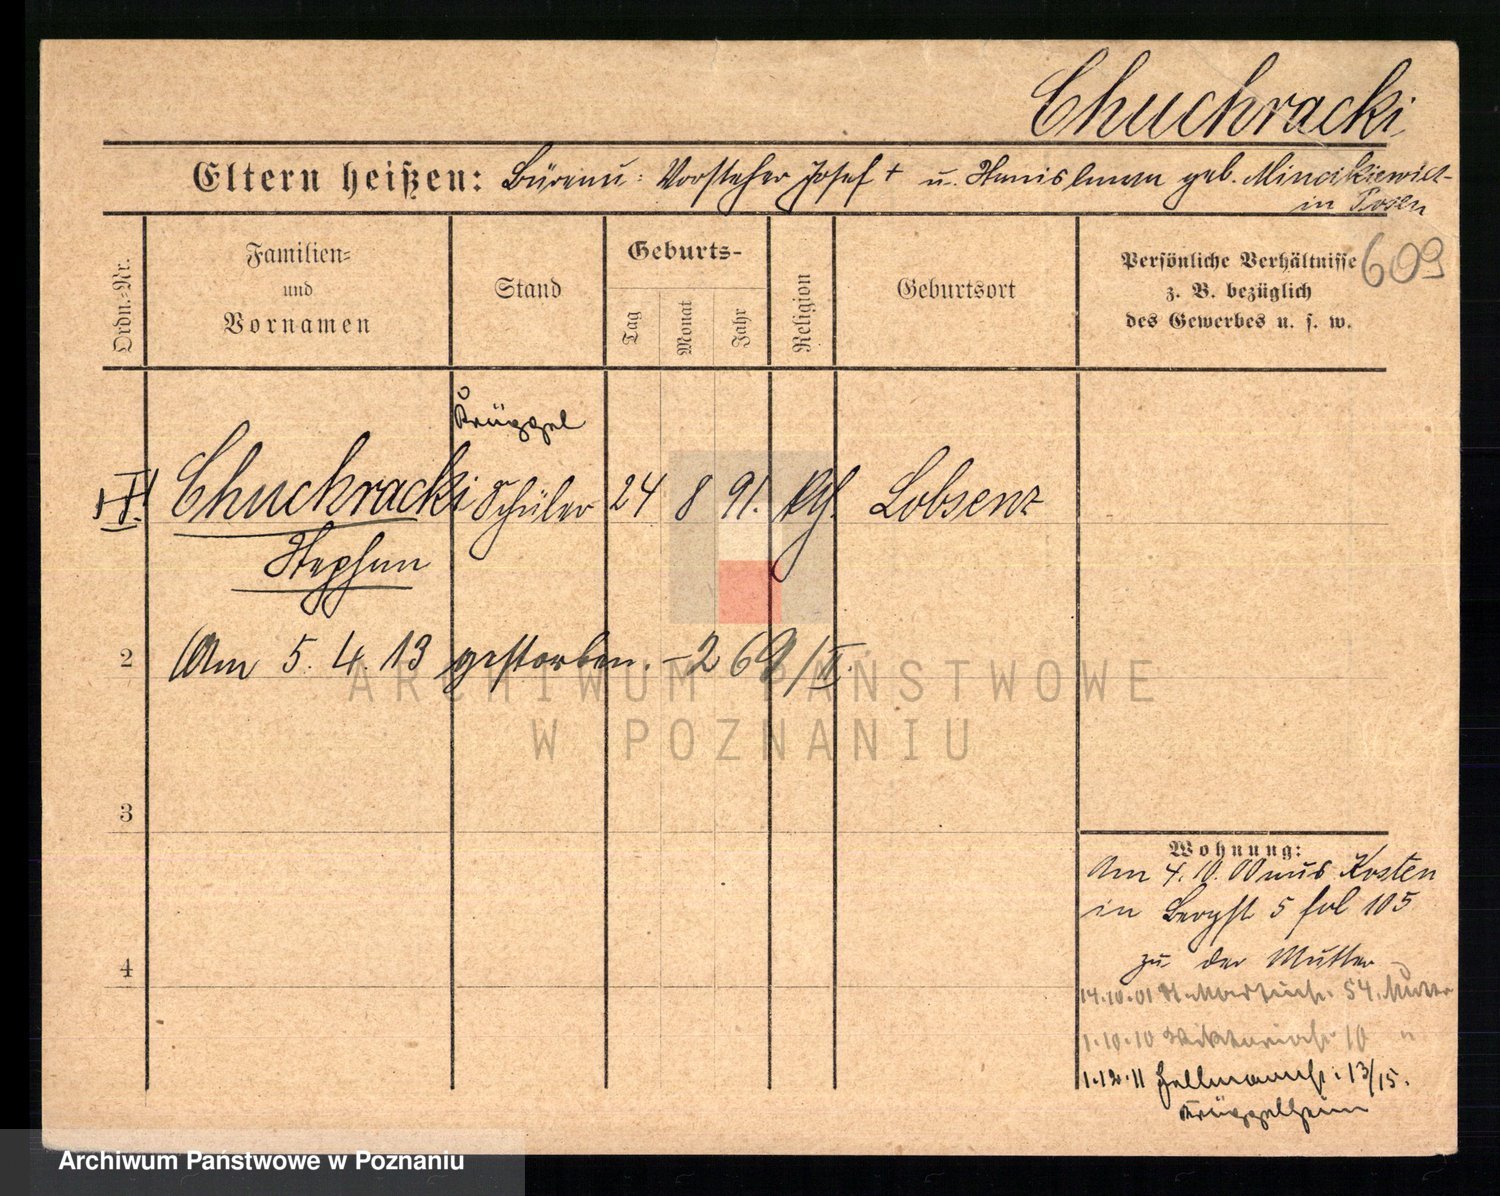 Chuchracki
Eltern heißen: Büreau-Vorsteher Josef + u. Stanislawa geb.
in Posen
609
Ordn.-Nr.
Familien-
und
Vornamen
Stand
Geburts-
Tag
Monat
Jahr
Religion
Geburtsort
Persönliche Verhältnisse
z. B. bezüglich
des Gewerbes u. s. w.
Krüppel
Chuchracki Schüler 24 8 91. kth. Lobsenz
Stephan
2
Am 5. 4. 13 gestorben. - 2 69/II.
3
4
Wohnung:
Am 4.10.00 aus Kosten
in Bergst 5 fol 105
zu der Mutter
14.10.01 St. Martinstr. 54. Mutter
1.10.10 Viktoriastr 10 "
1.12.11 13/15.
Krüppelheim
ARCHIWUM PAŃSTWOWE
W POZNANIU
Archiwum Państwowe w Poznaniu